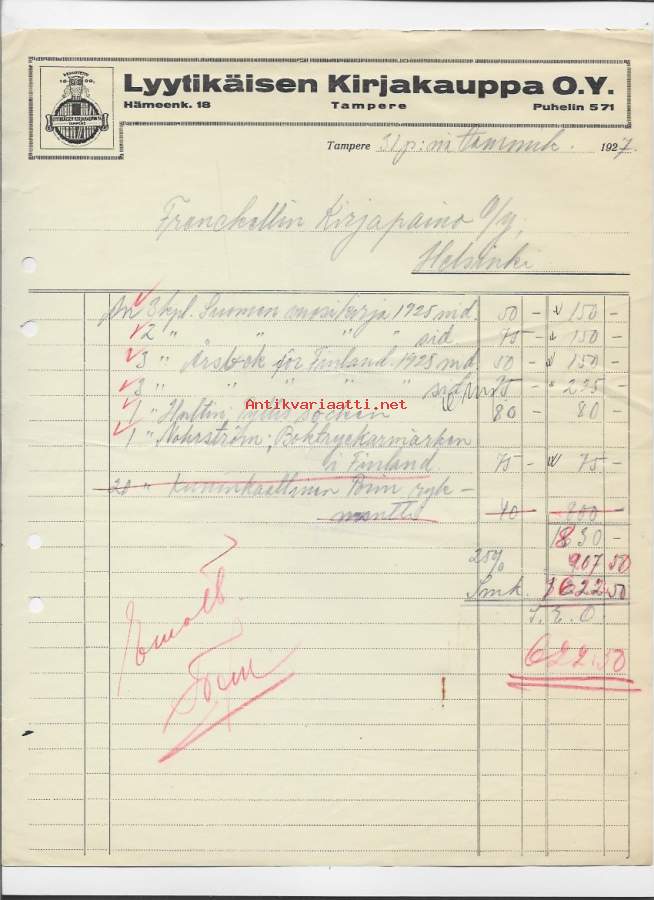 PERUSTETTU
Lyytikäisen Kirjakauppa O.Y.
Hämeenk. 18 Tampere Puhelin 571
LYYTIKÄISEN KIRJAKAUPPA
TAMPERE
Tampere 31 p:nä tammik. 1927.
Frenckellin Kirjapaino O/y,
Helsinki
3 kpl. Suomen vuosikirja 1925 nid. 50 - 150 -
2 " " " " sid 75 - 150 -
3 " Årsbok för Finland 1925 nid. 50 - 150 -
3 " " " " " sid 75 - 225 -
Antikvariaatti.net
1 " Hultin, socken 80 - 80 -
1 " Nohrström; Boktryckarmärken
i Finland 75 - 75 -
20 " Kuninkaallinen Porin ryk-
mentti 40 - 800 -
830 -
25% 207 50
Smk. 622,50
S. E. O.
622.50